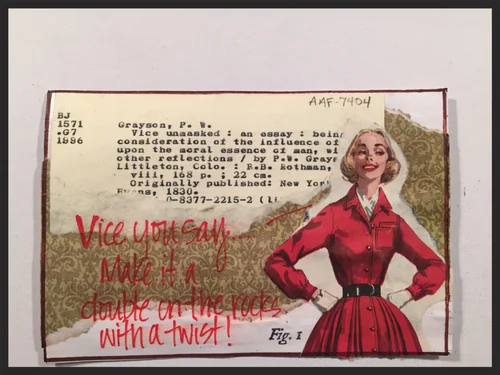 AAF-7404
BJ
1571
.G7
1996
Grayson, P. W.
Vice unmasked : an essay : being
consideration of the influence of
upon the moral essence of man, wi
other reflections / by P.W. Grays
Littleton, Colo. : F.B. Rothman,
viii, 168 p. ; 22 cm.
Originally published: New York
Evans, 1830.
0-8377-2215-2 (l
Vice, you say....
Make it a
double on-the-rocks
with a twist!
Fig. 1